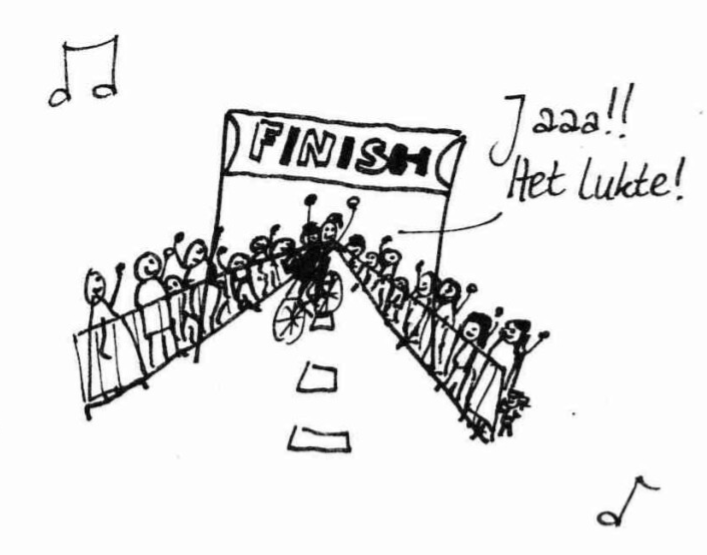 FINISH
Jaaa!!
Het lukte!